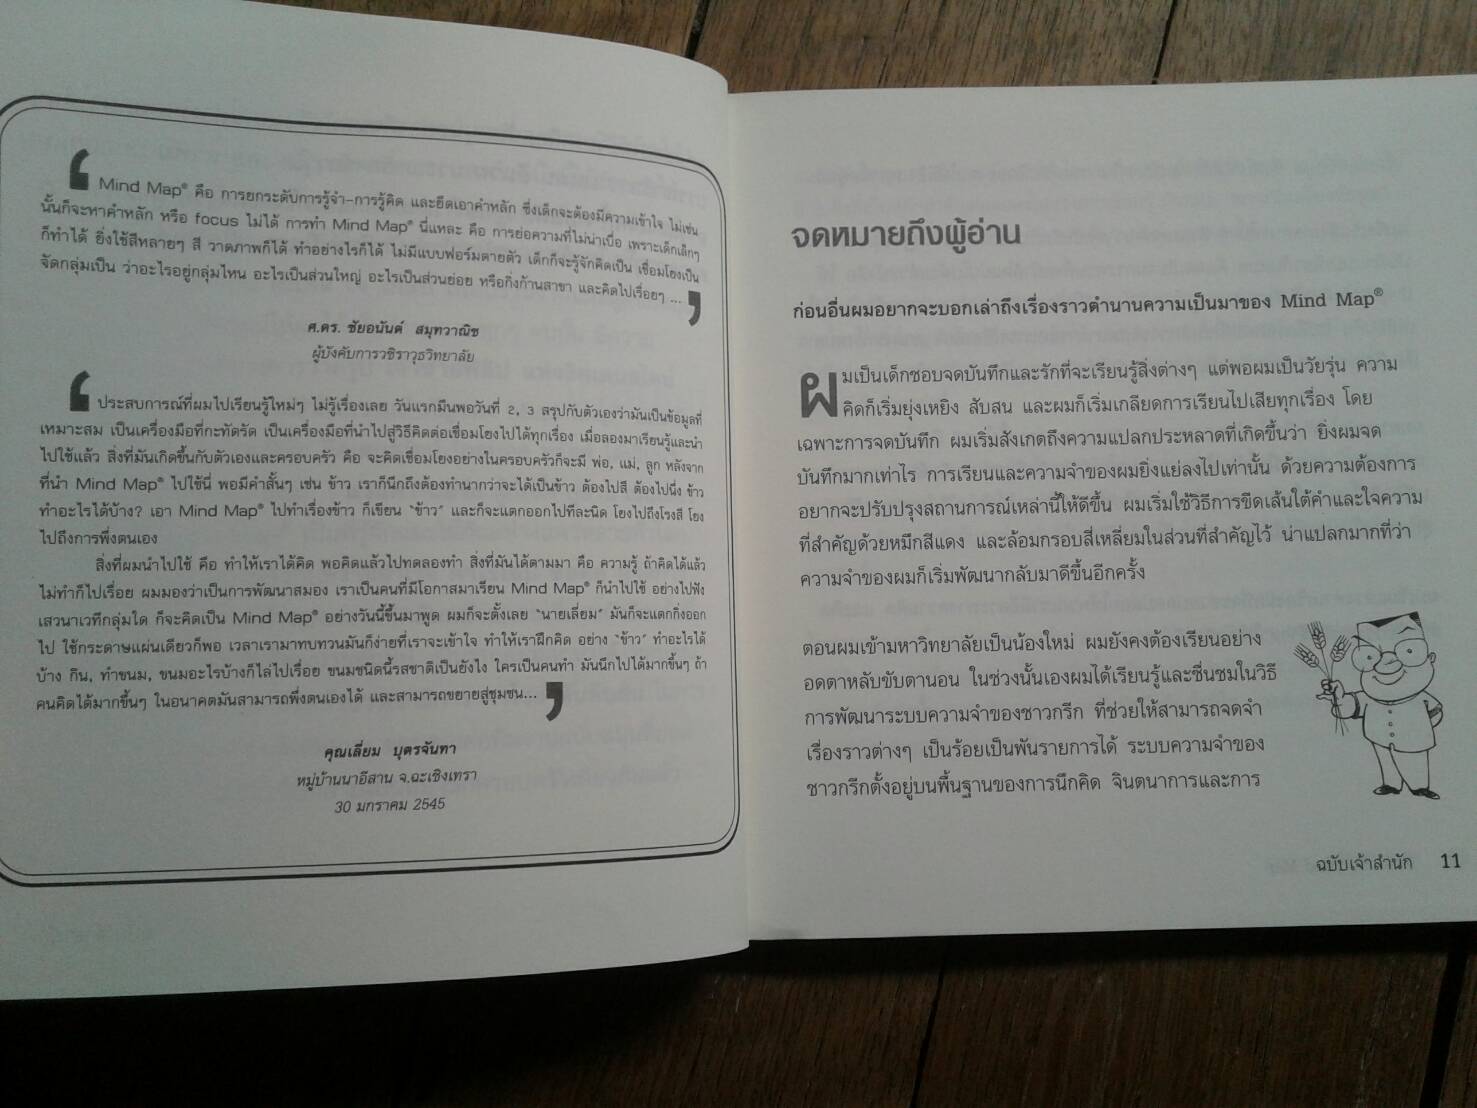 Mind Map® คือ การยกระดับการรู้จำ-การรู้คิด และยึดเอาคำหลัก ซึ่งเด็กจะต้องมีความเข้าใจ ไม่เช่น
นั้นก็จะหาคำหลัก หรือ focus ไม่ได้ การทำ Mind Map® นี่แหละ คือ การย่อความที่ไม่น่าเบื่อ เพราะเด็กเล็กๆ
ก็ทำได้ ยิ่งใช้สีหลายๆ สี วาดภาพก็ได้ ทำอย่างไรก็ได้ ไม่มีแบบฟอร์มตายตัว เด็กก็จะรู้จักคิดเป็น เชื่อมโยงเป็น
จัดกลุ่มเป็น ว่าอะไรอยู่กลุ่มไหน อะไรเป็นส่วนใหญ่ อะไรเป็นส่วนย่อย หรือกิ่งก้านสาขา และคิดไปเรื่อยๆ ...
ศ.ดร. ชัยอนันต์ สมุทวาณิช
ผู้บังคับการวชิราวุธวิทยาลัย
ประสบการณ์ที่ผมไปเรียนรู้ใหม่ๆ ไม่รู้เรื่องเลย วันแรกมึนพอวันที่ 2, 3 สรุปกับตัวเองว่ามันเป็นข้อมูลที่
เหมาะสม เป็นเครื่องมือที่กะทัดรัด เป็นเครื่องมือที่นำไปสู่วิธีคิดต่อเชื่อมโยงไปได้ทุกเรื่อง เมื่อลองมาเรียนรู้และนำ
ไปใช้แล้ว สิ่งที่มันเกิดขึ้นกับตัวเองและครอบครัว คือ จะคิดเชื่อมโยงอย่างในครอบครัวก็จะมี พ่อ, แม่, ลูก หลังจาก
ที่นำ Mind Map® ไปใช้นี่ พอมีคำสั้นๆ เช่น ข้าว เราก็นึกถึงต้องทำนากว่าจะได้เป็นข้าว ต้องไปสี ต้องไปนึ่ง ข้าว
ทำอะไรได้บ้าง? เอา Mind Map® ไปทำเรื่องข้าว ก็เขียน "ข้าว" และก็จะแตกออกไปทีละนิด โยงไปถึงโรงสี โยง
ไปถึงการพึ่งตนเอง
สิ่งที่ผมนำไปใช้ คือ ทำให้เราได้คิด พอคิดแล้วไปทดลองทำ สิ่งที่มันได้ตามมา คือ ความรู้ ถ้าคิดได้แล้ว
ไม่ทำก็ไปเรื่อย ผมมองว่าเป็นการพัฒนาสมอง เราเป็นคนที่มีโอกาสมาเรียน Mind Map® ก็นำไปใช้ อย่างไปฟัง
เสวนาเวทีกลุ่มใด ก็จะคิดเป็น Mind Map® อย่างวันนี้ขึ้นมาพูด ผมก็จะตั้งเลย "นายเลี่ยม" มันก็จะแตกกิ่งออก
ไป ใช้กระดาษแผ่นเดียวก็พอ เวลาเรามาทบทวนมันก็ง่ายที่เราจะเข้าใจ ทำให้เราฝึกคิด อย่าง "ข้าว" ทำอะไรได้
บ้าง กิน, ทำขนม, ขนมอะไรบ้างก็ไล่ไปเรื่อย ขนมชนิดนี้รสชาติเป็นยังไง ใครเป็นคนทำ มันนึกไปได้มากขึ้นๆ ถ้า
คนคิดได้มากขึ้นๆ ในอนาคตมันสามารถพึ่งตนเองได้ และสามารถขยายสู่ชุมชน...
คุณเลี่ยม บุตรจันทา
หมู่บ้านนาอีสาน จ.ฉะเชิงเทรา
30 มกราคม 2545
จดหมายถึงผู้อ่าน
ก่อนอื่นผมอยากจะบอกเล่าถึงเรื่องราวตำนานความเป็นมาของ Mind Map®
ผมเป็นเด็กชอบจดบันทึกและรักที่จะเรียนรู้สิ่งต่างๆ แต่พอผมเป็นวัยรุ่น ความ
คิดก็เริ่มยุ่งเหยิง สับสน และผมก็เริ่มเกลียดการเรียนไปเสียทุกเรื่อง โดย
เฉพาะการจดบันทึก ผมเริ่มสังเกตถึงความแปลกประหลาดที่เกิดขึ้นว่า ยิ่งผมจด
บันทึกมากเท่าไร การเรียนและความจำของผมยิ่งแย่ลงไปเท่านั้น ด้วยความต้องการ
อยากจะปรับปรุงสถานการณ์เหล่านี้ให้ดีขึ้น ผมเริ่มใช้วิธีการขีดเส้นใต้คำและใจความ
ที่สำคัญด้วยหมึกสีแดง และล้อมกรอบสี่เหลี่ยมในส่วนที่สำคัญไว้ น่าแปลกมากที่ว่า
ความจำของผมก็เริ่มพัฒนากลับมาดีขึ้นอีกครั้ง
ตอนผมเข้ามหาวิทยาลัยเป็นน้องใหม่ ผมยังคงต้องเรียนอย่าง
อดตาหลับขับตานอน ในช่วงนั้นเองผมได้เรียนรู้และชื่นชมในวิธี
การพัฒนาระบบความจำของชาวกรีก ที่ช่วยให้สามารถจดจำ
เรื่องราวต่างๆ เป็นร้อยเป็นพันรายการได้ ระบบความจำของ
ชาวกรีกตั้งอยู่บนพื้นฐานของการนึกคิด จินตนาการและการ
ฉบับเจ้าสำนัก 11